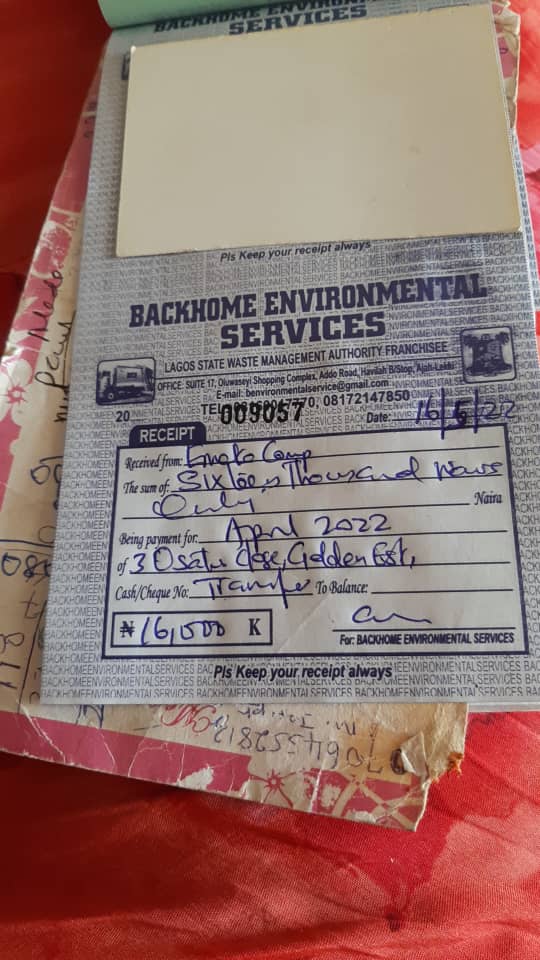 BACKHOME ENVIRONMENTAL
SERVICES
Pls Keep your receipt always
BACKHOME ENVIRONMENTAL
SERVICES
LAGOS STATE WASTE MANAGEMENT AUTHORITY FRANCHISEE
OFFICE: SUITE 17, Oluwaseyi Shopping Complex, Addo Road, Havilah B/Stop, Ajah-Lekki
E-mail: benvironmentalservice@gmail.com
TEL: 70, 08172147850
20 009057 Date: 16/5/22
RECEIPT
Received from: Emako Comp
The sum of: Sixteen Thousand Naira
Only Naira
Being payment for: April 2022
of 3 Osatu close, Golden Est,
Cash/Cheque No: Transfe To Balance:
₦ 16,000 K
For: BACKHOME ENVIRONMENTAL SERVICES
Pls Keep your receipt always